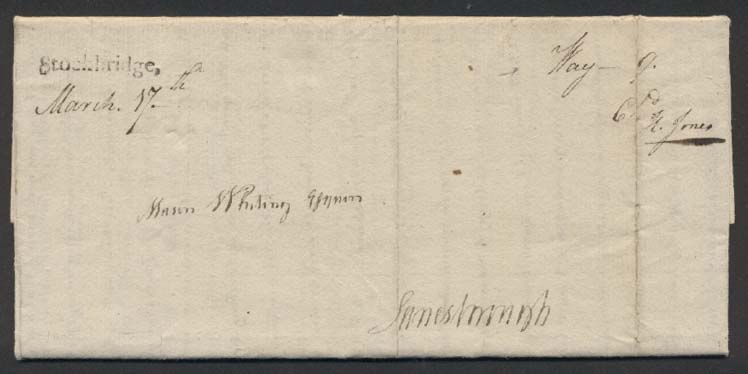 Stockbridge,
March. 17th
Way — 9.
Chd
H. Jones
Mason Whiting Esquire
Lanesborough